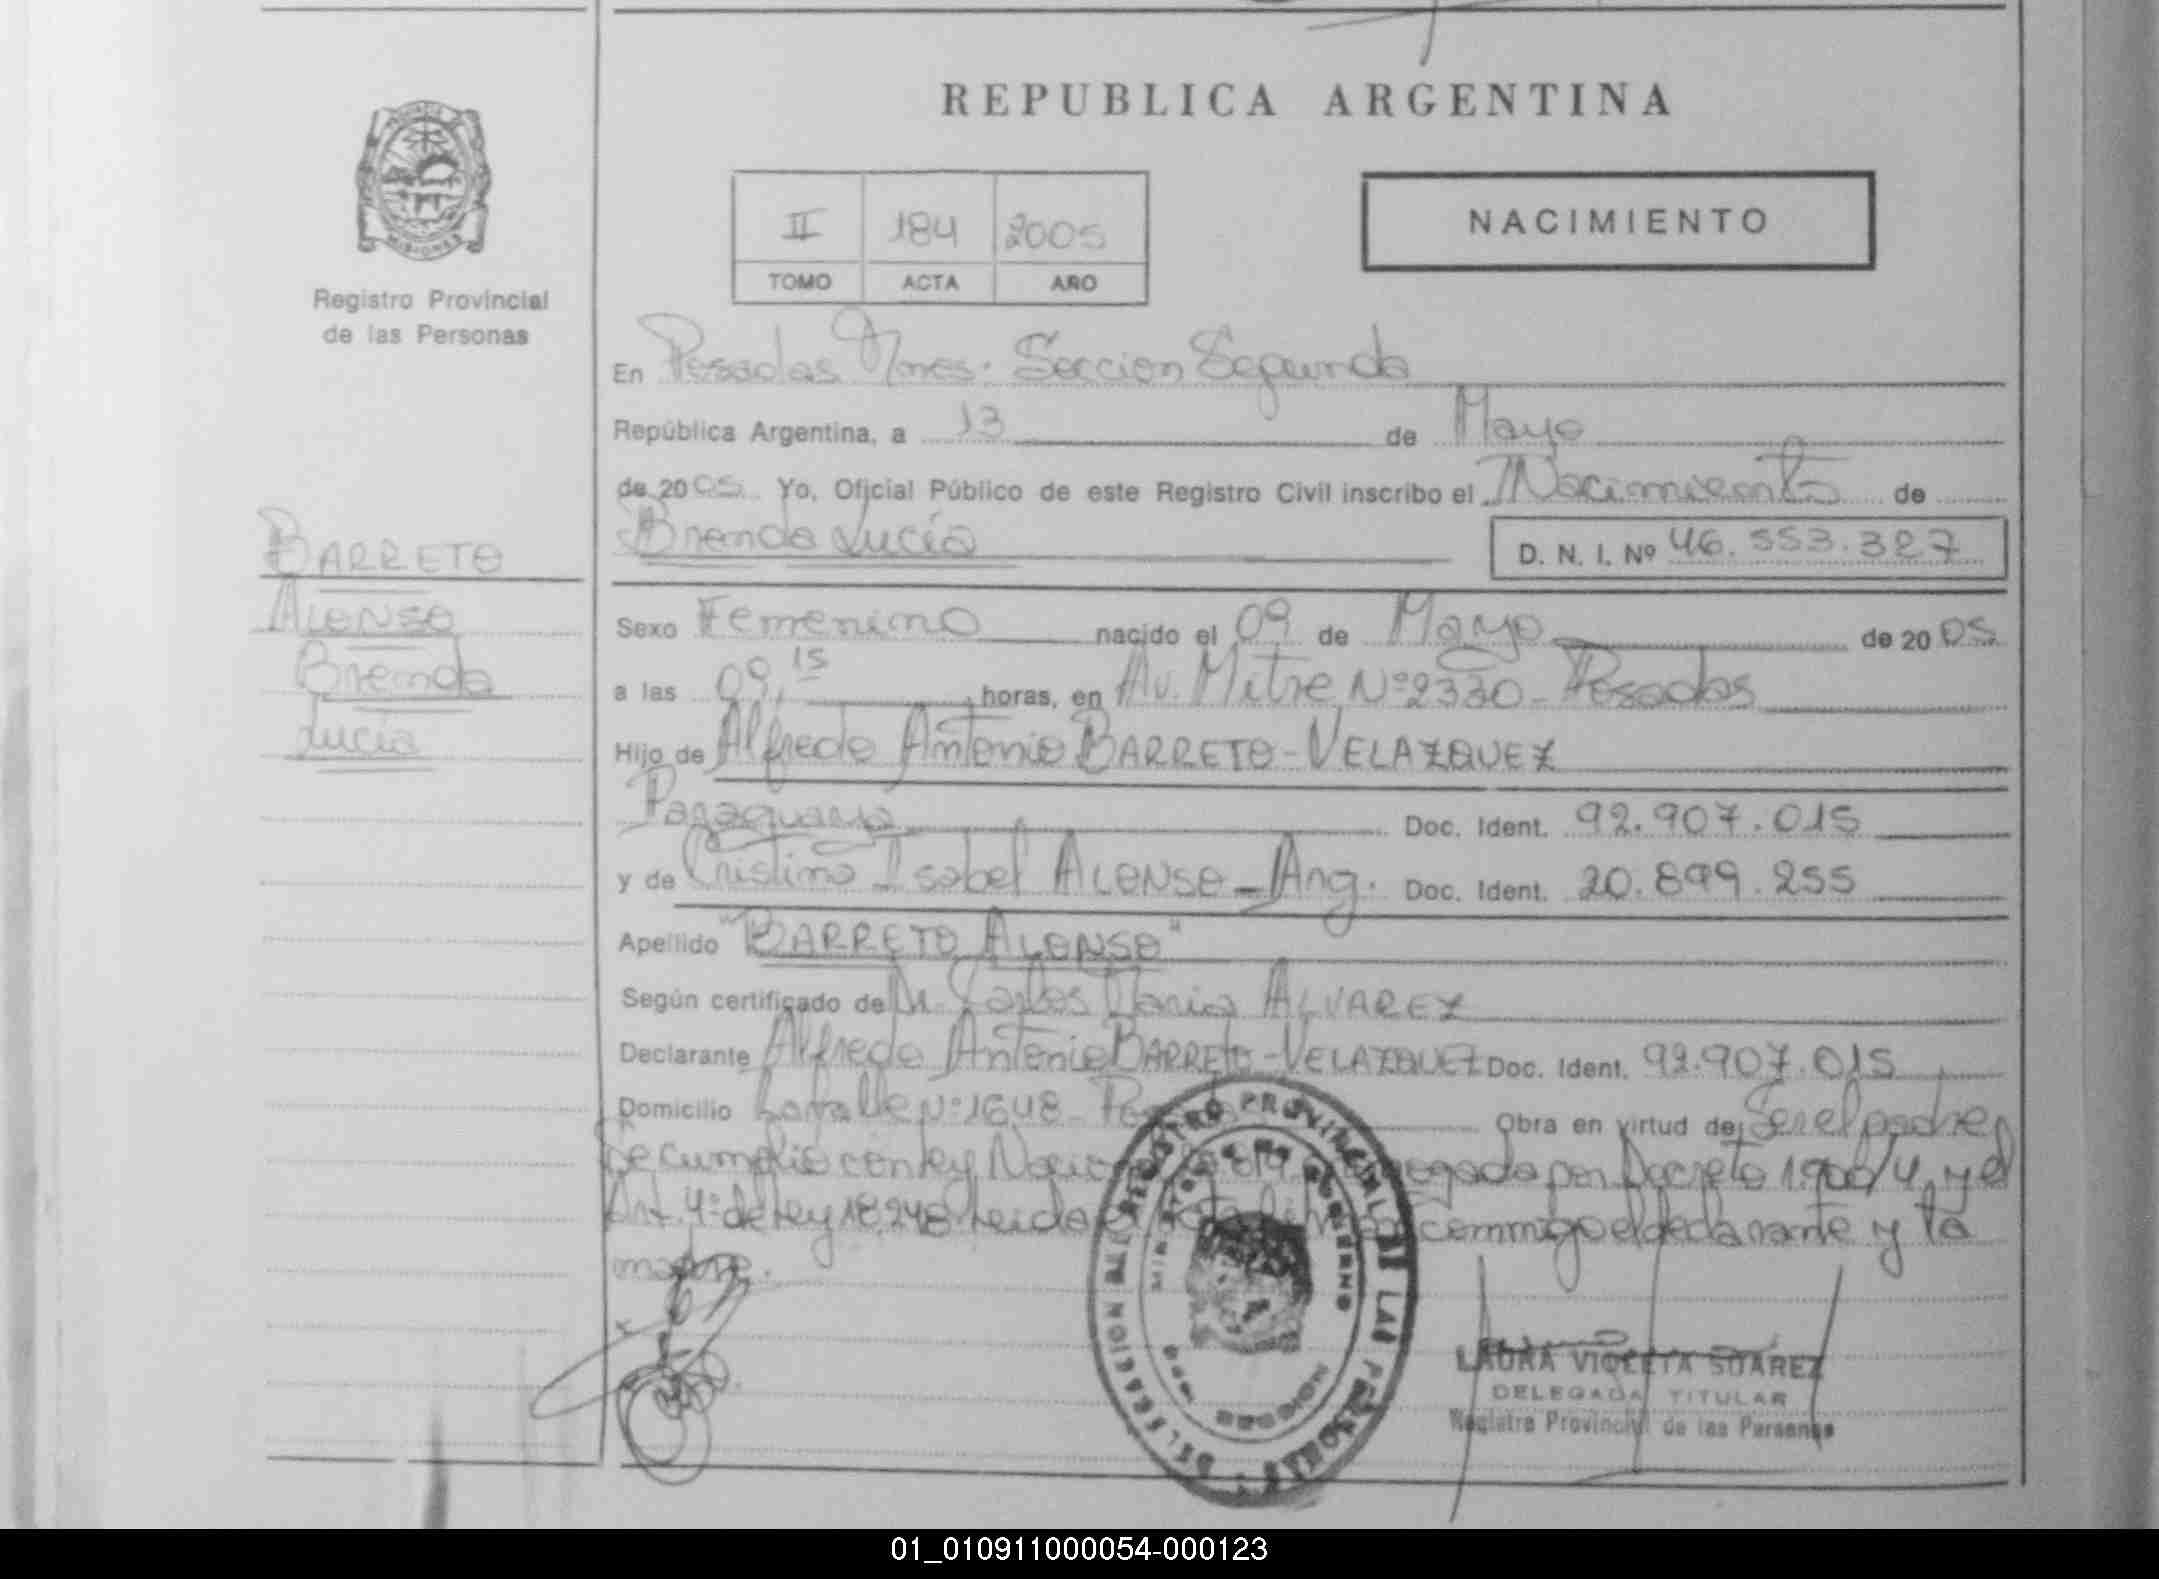 REPUBLICA ARGENTINA
MISIONES
Registro Provincial
de las Personas
II 184 2005
TOMO ACTA AÑO
NACIMIENTO
En Posadas Mnes. Seccion Segunda
República Argentina, a 13 de Mayo
de 2005 Yo, Oficial Público de este Registro Civil inscribo el Nacimiento de
Brenda Lucía
D. N. I. Nº 46.553.327
BARRETO
ALONSO
Brenda
Lucía
Sexo Femenino nacido el 09 de Mayo de 2005
a las 09,15 horas, en Av. Mitre Nº 2330 - Posadas
Hijo de Alfredo Antonio BARRETO - VELAZQUEZ
Paraguaya Doc. Ident. 92.907.015
y de Cristina Isabel ALONSO - Arg. Doc. Ident. 20.899.255
Apellido "BARRETO ALONSO"
Según certificado de Dr. Carlos Maria ALVAREZ
Declarante Alfredo Antonio BARRETO - VELAZQUEZ Doc. Ident. 92.907.015
Domicilio Lavalle Nº 1648 - Obra en virtud de Ser el padre
Se cumplio con ley por Decreto y el
Art. 4º de ley 18.248 Leida conmigo el declarante y la
madre.
DELEGACION REGISTRO PROVINCIAL DE LAS PERSONAS
GOBIERNO
MISIONES
LAURA VIOLETA SUAREZ
DELEGADA TITULAR
Registro Provincial de las Personas
01_010911000054-000123